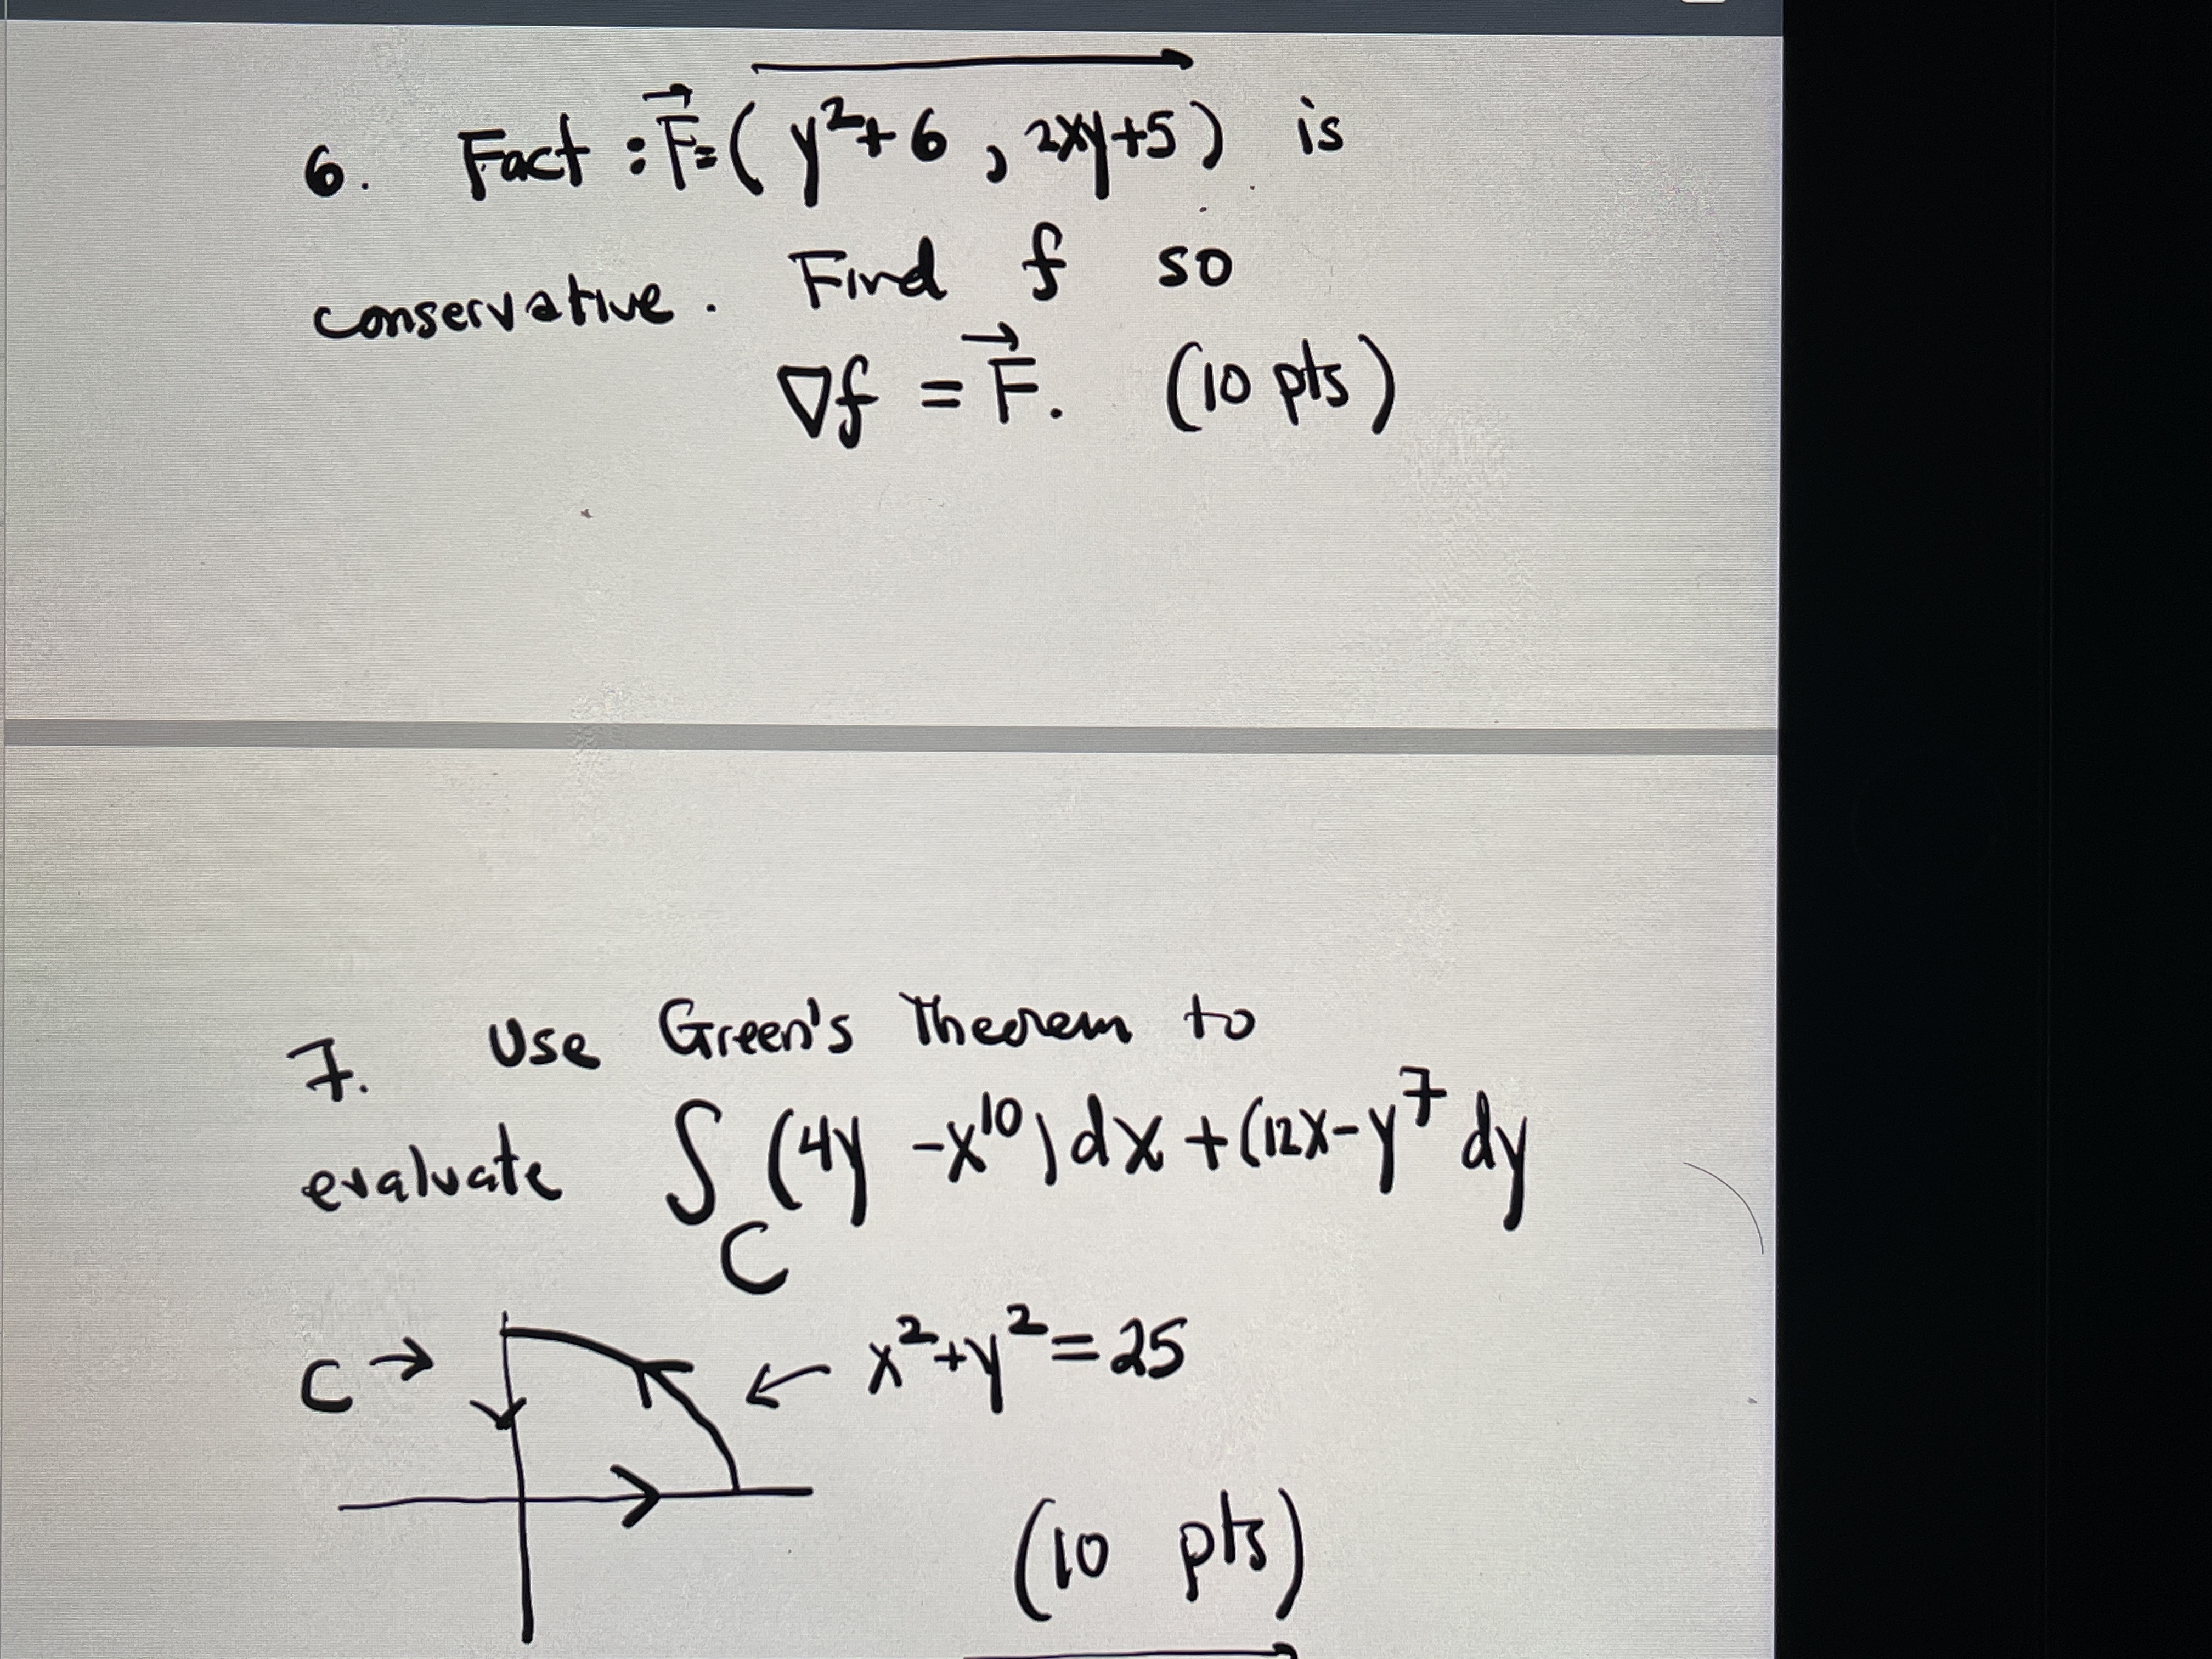 6. Fact : F⃗ = ( y² + 6 , 2xy + 5 ) is
conservative. Find f so
∇f = F⃗. (10 pts)
7. Use Green's Theorem to
evaluate ∫ (4y - x¹⁰) dx + (12x - y⁷ dy
C
C → ← x² + y² = 25
(10 pts)